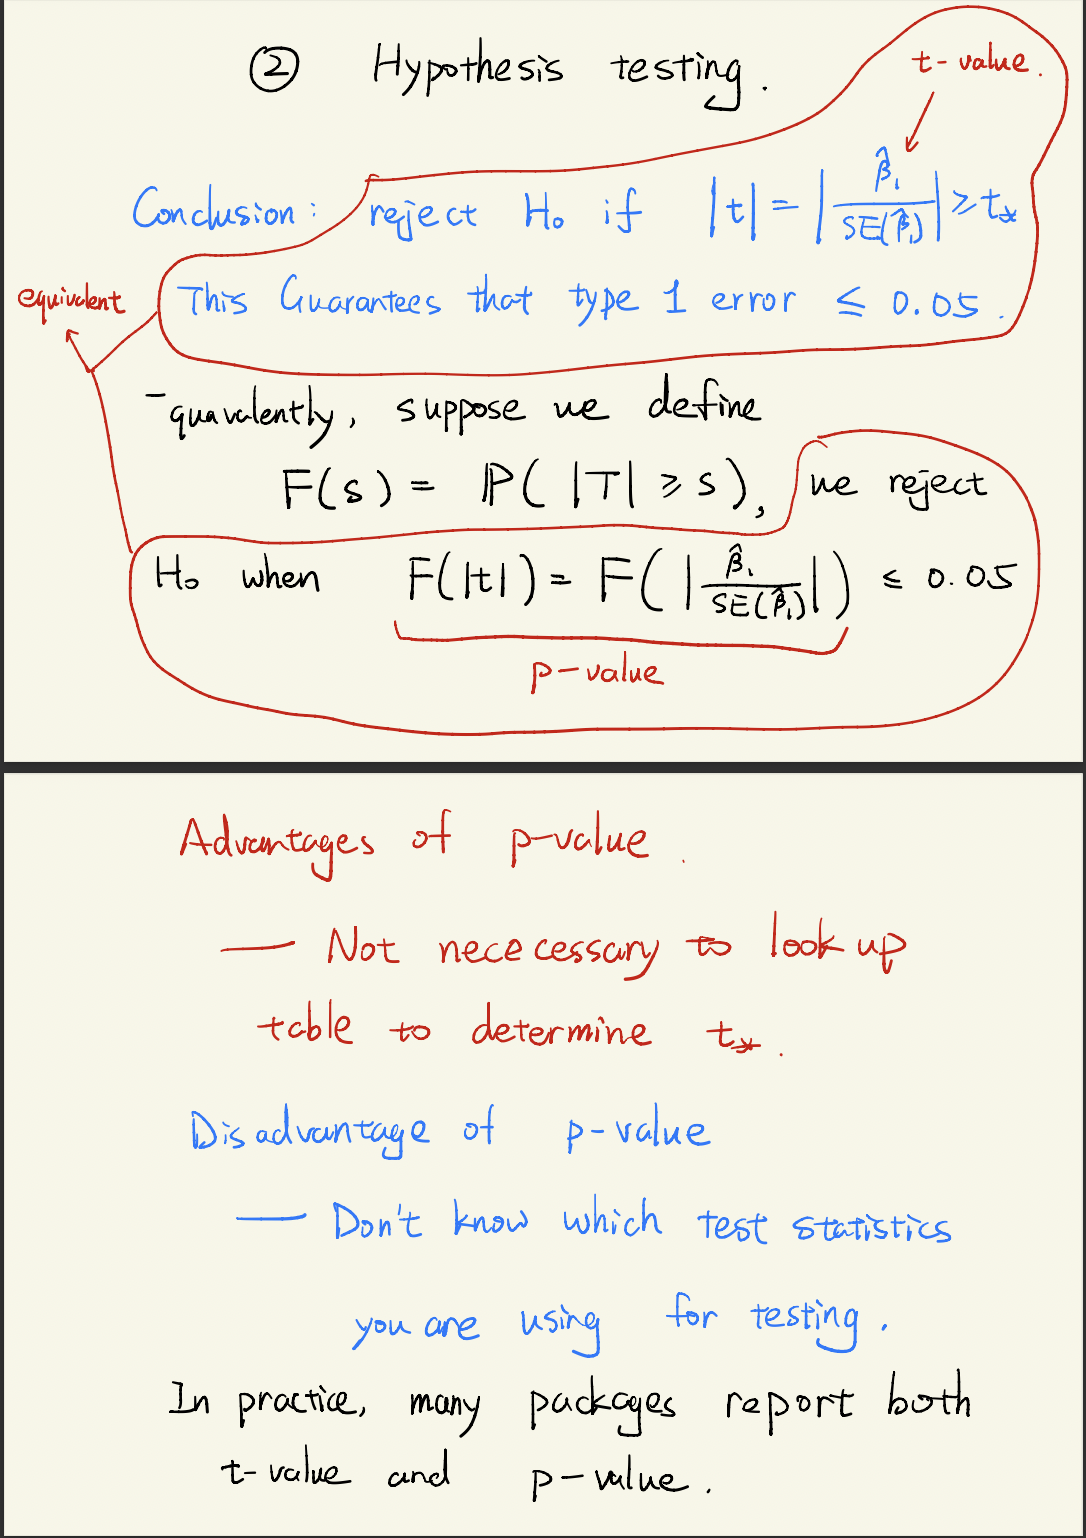 ② Hypothesis testing.
t-value.
Conclusion: reject H₀ if |t| = |β̂₁ / SE(β̂₁)| ≥ t⁎
equivalent
This Guarantees that type 1 error ≤ 0.05.
quavalently, suppose we define
F(s) = ℙ(|T| ≥ s), we reject
H₀ when F(|t|) = F(|β̂₁ / SE(β̂₁)|) ≤ 0.05
p-value
Advantages of p-value.
— Not nececessary to look up
table to determine t⁎.
Disadvantage of p-value
— Don't know which test statistics
you are using for testing.
In practice, many packages report both
t-value and p-value.